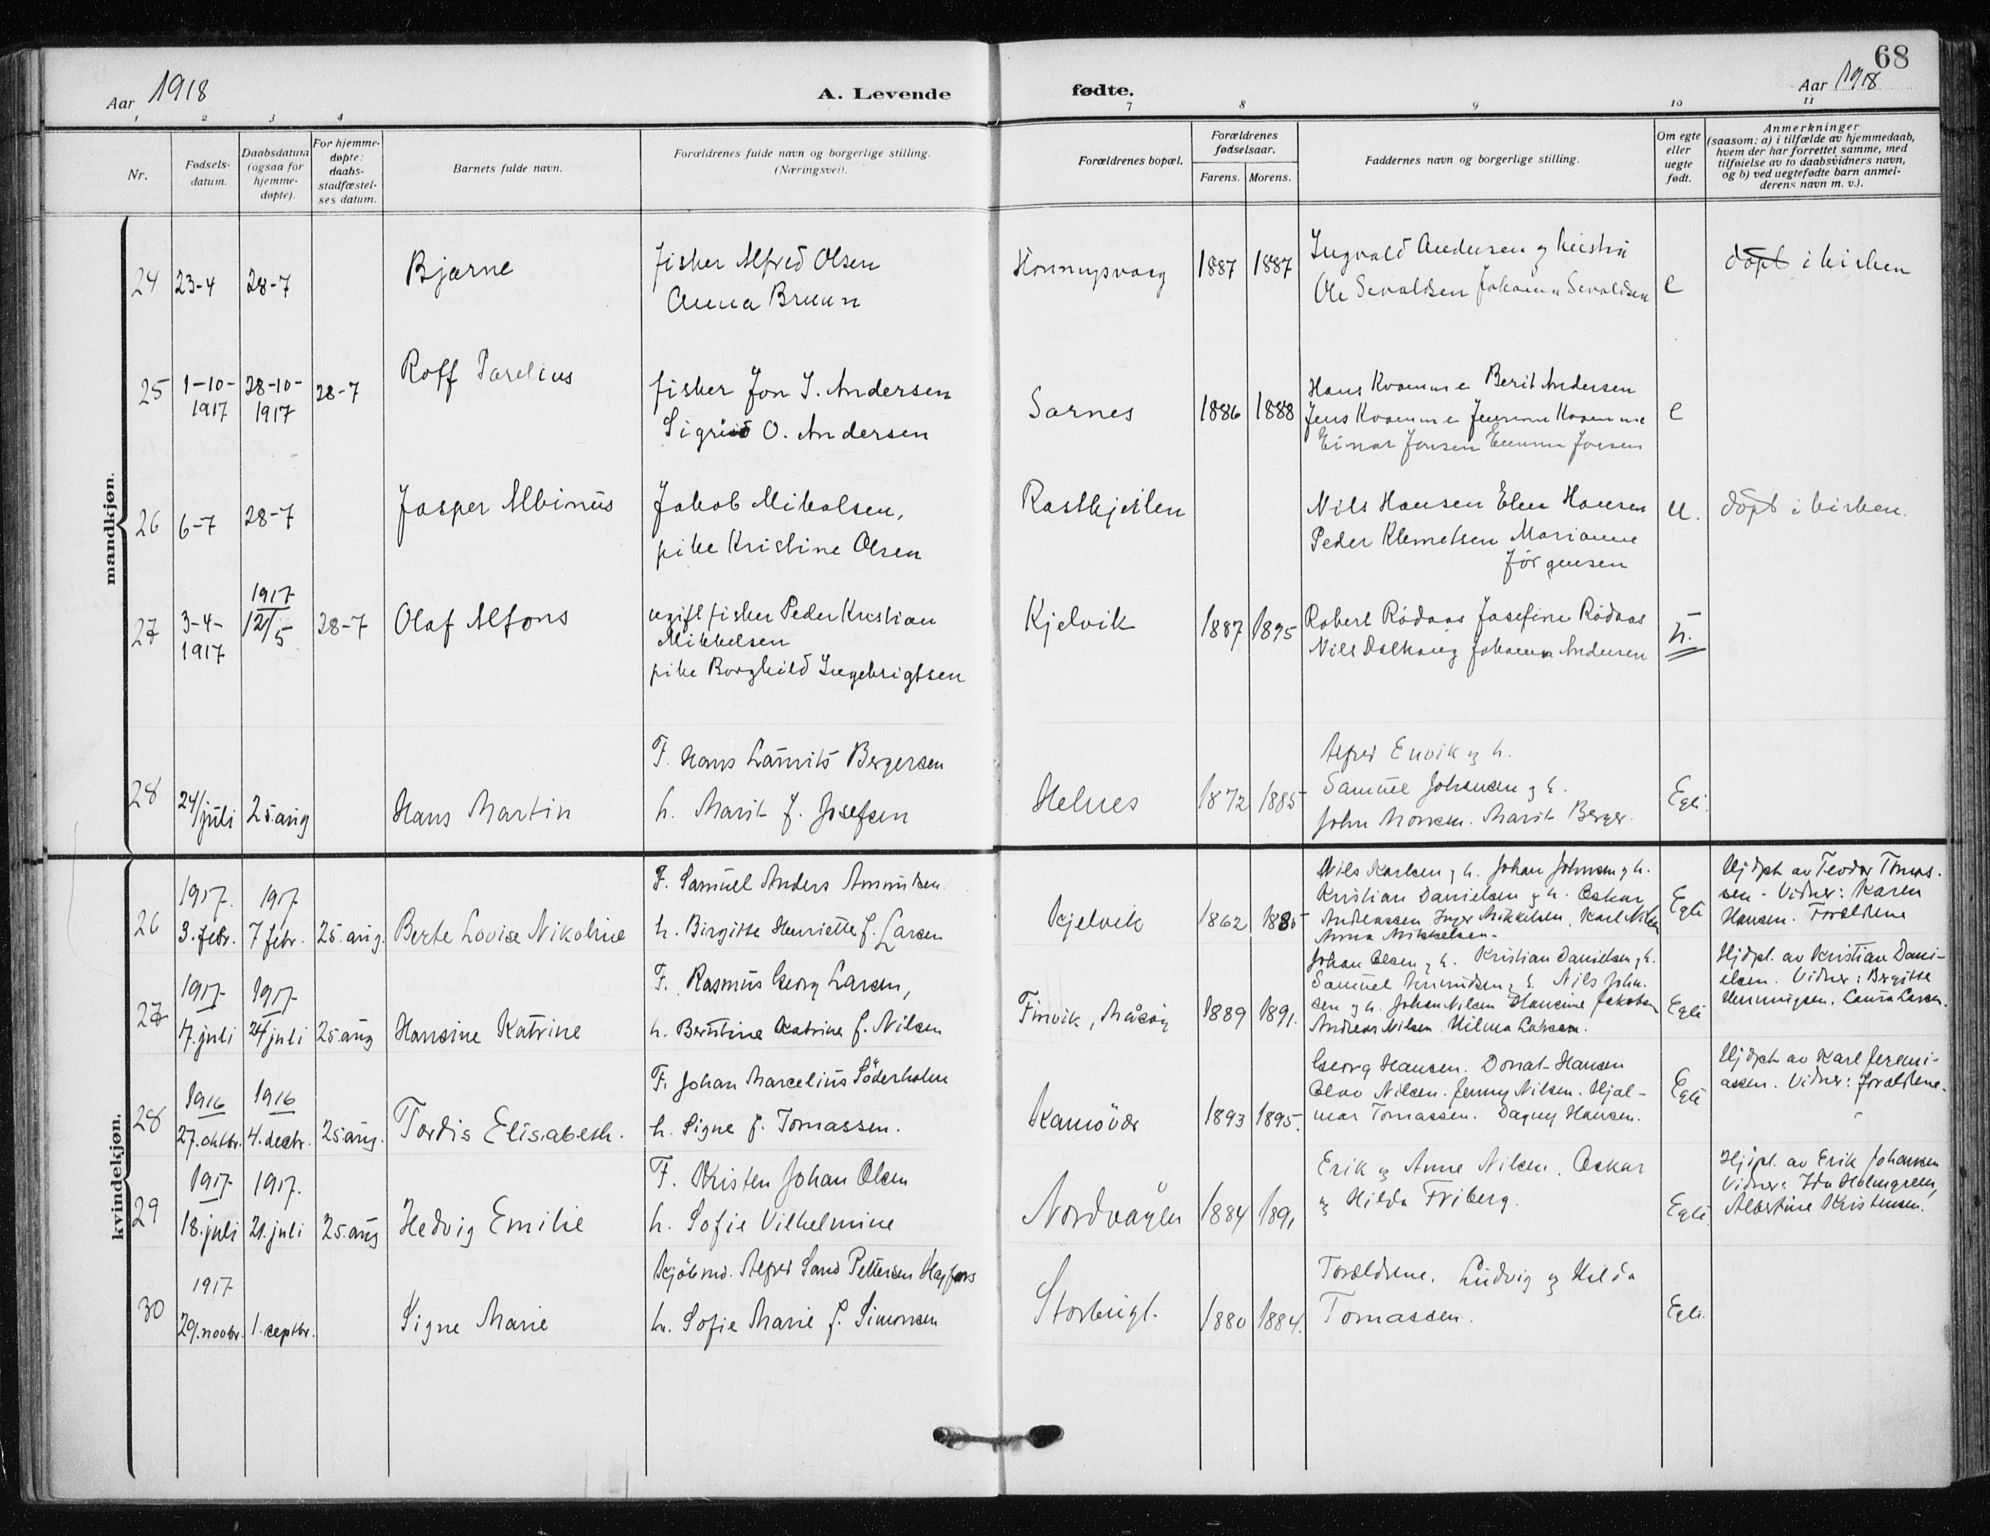 68
Aar 1918
A. Levende
fødte.
Aar 1918
1 2 3 4 7 8 9 10 11
Nr.
Fødsels-
datum.
Daabsdatum
(ogsaa for
hjemme-
døpte).
For hjemme-
døpte:
daabs-
stadfæstel-
ses datum.
Barnets fulde navn.
Forældrenes fulde navn og borgerlige stilling.
(Næringsvei).
Forældrenes bopæl.
Forældrenes
fødselsaar.
Farens. Morens.
Faddernes navn og borgerlige stilling.
Om egte
eller
uegte
født.
Anmerkninger
(saasom: a) i tilfælde av hjemmedaab,
hvem der har forrettet samme, med
tilføielse av to daabsvidners navn,
og b) ved uegtefødte barn anmel-
derens navn m. v.).
mandkjøn.
24 23-4 28-7 Bjarne
fisker Alfred Olsen
Anna Bruun
Honningsvaag 1887 1887
Ingvald Andersen og
Ole Sevaldsen Johanna Sevaldsen
e
døpt i kirken
25 1-10-
1917
28-10-
1917
28-7
Rolf Parelius
fisker Jon J. Andersen
Sigrid O. Andersen
Sarnes 1886 1888
Hans Kvamme Berit Andersen
Jens Kvamme Kvamme
Einar Jonsen Emma Jonsen
e
26 6-7 28-7 Jasper Albinus
Jakob Mikalsen,
pike Kristine Olsen
Nils Hansen Elen Hansen
Peder Klemetsen Marianne
Jørgensen
u.
døpt i kirken.
27 3-4-
1917
1917
12/5
28-7
Olaf Alfons
ugift fisker Peder Kristian
Mikkelsen
pike Borghild Ingebrigtsen
Kjelvik 1887 1895
Robert Rødaas Josefine Rødaas
Nils Johanna Andersen
u.
28 24/juli 25.aug Hans Martin
F. Hans Bergersen
h. Marit f. Josefsen
Helnes 1872 1885
Alfred Envik og h.
Samuel Johansen og h.
John Monsen. Marit Berger.
Egte.
kvindekjøn.
26 1917.
3.febr.
1917
7 febr.
25.aug.
Berte Lovise Nikoline
F. Samuel Anders Amundsen.
h. Birgitte Henriette f. Larsen
Kjelvik 1862 1885
Nils Karlsen og h. Johan Johnsen og h.
Kristian Danielsen og h. Oskar
Andreassen Inger Mikkelsen, Karl Nilsen
Anna Mikkelsen.
Egte
Hjdpt av Teodor Tomas-
sen. Vidner: Karen
Hansen. Forældrene
27 1917
7.juli
1917
24 juli
25 aug
Hansine Katrine
F. Rasmus Georg Larsen,
h. Berntine Katrine f. Nilsen
Finvik, Måsöy 1889 1891.
Johan Olsen og h. Kristian Danielsen og h.
Samuel Amundsen og h. Nils John-
sen og h. Johan Nilsen Hansine Jakobsen
Andreas Nilsen. Hilma Larsen.
Egte
Hjdpt. av Kristian Dani-
elsen. Vidner: Birgitte
Henningsen. Laura Larsen.
28 1916
27.oktbr.
1916
4.decbr.
25.aug.
Tordis Elisabeth.
F. Johan Marcelius Söderholm
h. Signe f. Tomassen.
Kamöver 1893 1895.
Georg Hansen. Donat Hansen
Olav Nilsen. Jenny Nilsen. Hjal-
mar Tomassen. Dagny Hansen.
Egte
Hjdpt av Karl Jeremi-
assen. Vidner: forældrene.
29 1917
18.juli
1917.
21.juli
25.aug
Hedvig Emilie
F. Kristen Johan Olsen
h. Sofie Vilhelmine
Nordvågen 1884 1891
Erik og Anne Nilsen. Oskar
og Hilda Friberg.
Egte
Hjdpt. av Erik Johansen
Vidner: Ida Holmgreen,
Albertine Kristensen.
30 1917
29.novbr.
1.septbr.
Signe Marie
Kjöbmd. Alfred Sand Pettersen
h. Sofie Marie f. Simonsen
Storbugt. 1880 1884.
Forældrene. Ludvig og Hilda
Tomassen.
Egte.